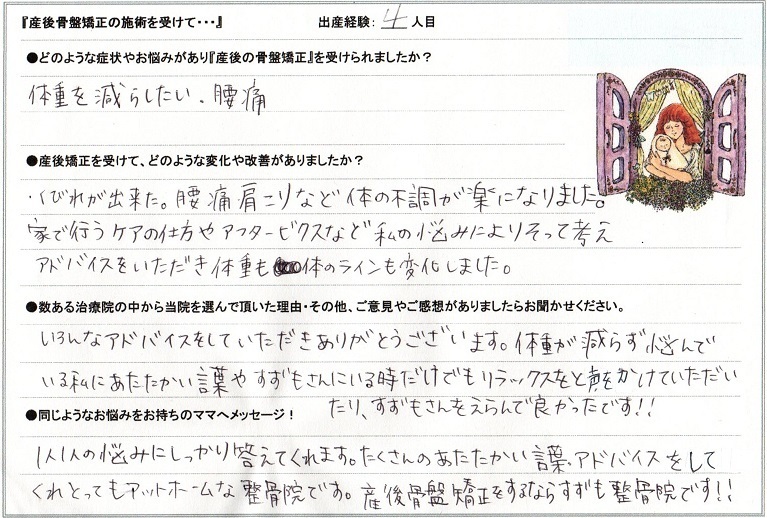 『産後骨盤矯正の施術を受けて・・・』 出産経験: 4 人目
●どのような症状やお悩みがあり『産後の骨盤矯正』を受けられましたか？
体重を減らしたい、腰痛
●産後矯正を受けて、どのような変化や改善がありましたか？
・くびれが出来た。腰痛肩こりなど体の不調が楽になりました。
家で行うケアの仕方やアフタービクスなど私の悩みによりそって考え
アドバイスをいただき体重も体のラインも変化しました。
●数ある治療院の中から当院を選んで頂いた理由・その他、ご意見やご感想がありましたらお聞かせください。
いろんなアドバイスをしていただきありがとうございます。体重が減らず悩んで
いる私にあたたかい言葉やすずもさんにいる時だけでもリラックスをと声をかけていただい
たり、すずもさんをえらんで良かったです!!
●同じようなお悩みをお持ちのママへメッセージ！
1人1人の悩みにしっかり答えてくれます。たくさんのあたたかい言葉・アドバイスをして
くれとってもアットホームな整骨院です。産後骨盤矯正をするならすずも整骨院です!!